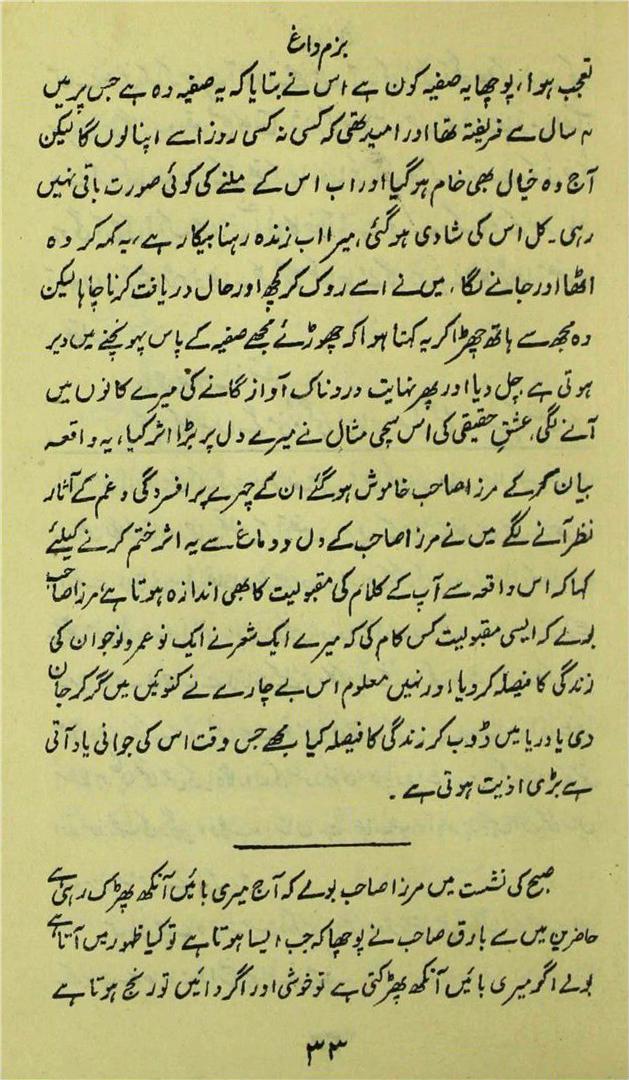 بزم داغ
تعجب ہوا، پوچھا یہ صفیہ کون ہے اس نے بتایا کہ یہ صفیہ وہ ہے جس پر میں
۴ سال سے فریفتہ تھا اور امید تھی کہ کسی نہ کسی روز اسے اپنا لوں گا لیکن
آج وہ خیال بھی خام ہو گیا اور اب اس کے ملنے کی کوئی صورت باقی نہیں
رہی۔ کل اس کی شادی ہو گئی، میرا اب زندہ رہنا بیکار ہے، یہ کہہ کر وہ
اٹھا اور جانے لگا، میں نے اسے روک کر کچھ اور حال دریافت کرنا چاہا لیکن
وہ مجھ سے ہاتھ چھڑا کر یہ کہتا ہوا کہ چھوڑئے مجھے صفیہ کے پاس پہونچنے میں دیر
ہوتی ہے چل دیا اور پھر نہایت دردناک آواز گانے کی میرے کانوں میں
آنے لگی، عشقِ حقیقی کی اس سچی مثال نے میرے دل پر بڑا اثر کیا، یہ واقعہ
بیان کر کے مرزا صاحب خاموش ہو گئے ان کے چہرے پر افسردگی و غم کے آثار
نظر آنے لگے میں نے مرزا صاحب کے دل و دماغ سے یہ اثر ختم کرنے کیلئے
کہا کہ اس واقعہ سے آپ کے کلام کی مقبولیت کا بھی اندازہ ہوتا ہے مرزا صاحب
بولے کہ ایسی مقبولیت کس کام کی کہ میرے ایک شعر نے ایک نو عمر و نوجوان کی
زندگی کا فیصلہ کر دیا اور نہیں معلوم اس بے چارے نے کنوئیں میں گر کر جان
دی یا دریا میں ڈوب کر زندگی کا فیصلہ کیا مجھے جس وقت اس کی جوانی یاد آتی
ہے بڑی اذیت ہوتی ہے۔
صبح کی نشست میں مرزا صاحب بولے کہ آج میری بائیں آنکھ پھڑک رہی ہے
حاضرین میں سے بارق صاحب نے پوچھا کہ جب ایسا ہوتا ہے تو کیا ظہور میں آتا ہے
بولے اگر میری بائیں آنکھ پھڑکتی ہے تو خوشی اور اگر دائیں تو رنج ہوتا ہے
۳۳